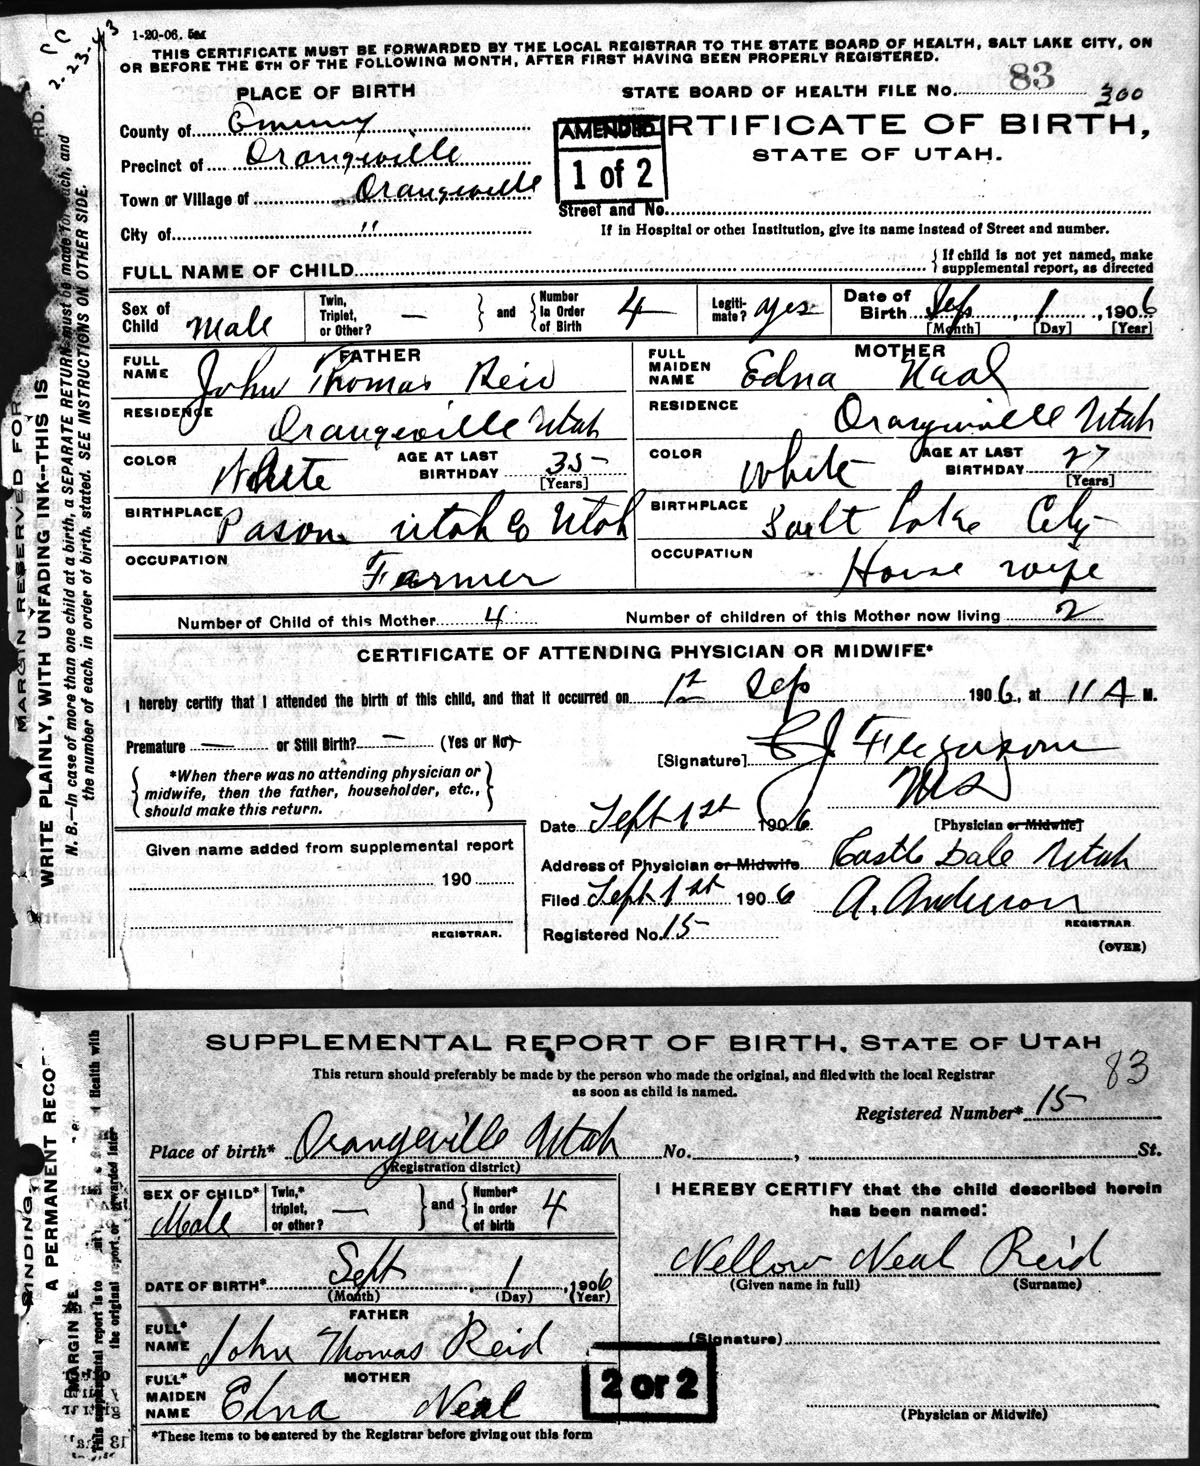 1-20-06. 5M
THIS CERTIFICATE MUST BE FORWARDED BY THE LOCAL REGISTRAR TO THE STATE BOARD OF HEALTH, SALT LAKE CITY, ON
OR BEFORE THE 5TH OF THE FOLLOWING MONTH, AFTER FIRST HAVING BEEN PROPERLY REGISTERED.
PLACE OF BIRTH
STATE BOARD OF HEALTH FILE No. 83 300
County of Emery
AMENDED
RTIFICATE OF BIRTH,
Precinct of Orangeville
1 of 2
STATE OF UTAH.
Town or Village of Orangeville
Street and No.
City of "
If in Hospital or other Institution, give its name instead of Street and number.
FULL NAME OF CHILD
If child is not yet named, make
supplemental report, as directed
Sex of Child Male
Twin, Triplet, or Other? —
and
Number In Order of Birth 4
Legiti- mate? yes
Date of Birth Sep, 1, 1906
[Month] [Day] [Year]
FATHER
MOTHER
FULL NAME John Thomas Reid
FULL MAIDEN NAME Edna Neal
RESIDENCE Orangeville Utah
RESIDENCE Orangeville Utah
COLOR White AGE AT LAST BIRTHDAY 35 [Years]
COLOR White AGE AT LAST BIRTHDAY 27 [Years]
BIRTHPLACE Pason Utah Co Utah
BIRTHPLACE Salt Lake City
OCCUPATION Farmer
OCCUPATION House wife
Number of Child of this Mother 4
Number of children of this Mother now living 2
CERTIFICATE OF ATTENDING PHYSICIAN OR MIDWIFE*
I hereby certify that I attended the birth of this child, and that it occurred on 1st Sep 1906, at 11 A M.
Premature — or Still Birth? — (Yes or No)
[Signature] C J Ferguson
*When there was no attending physician or
midwife, then the father, householder, etc.,
should make this return.
Date Sept 1st 1906
[Physician or Midwife]
Given name added from supplemental report
Address of Physician or Midwife Castle Dale Utah
190
Filed Sept 1st 1906 A. Anderson
REGISTRAR.
Registered No. 15
REGISTRAR.
(OVER)
MARGIN RESERVED FOR
WRITE PLAINLY, WITH UNFADING INK--THIS IS
N. B.—In case of more than one child at a birth, a SEPARATE RETURN must be made for each, and
the number of each, in order of birth, stated. SEE INSTRUCTIONS ON OTHER SIDE.
SUPPLEMENTAL REPORT OF BIRTH, STATE OF UTAH
83
This return should preferably be made by the person who made the original, and filed with the local Registrar
as soon as child is named.
Registered Number* 15
Place of birth* Orangeville Utah No. , St.
(Registration district)
SEX OF CHILD* Male
Twin,* triplet, or other? —
and
Number* In order of birth 4
I HEREBY CERTIFY that the child described herein
has been named:
Nellow Neal Reid
(Given name in full) (Surname)
DATE OF BIRTH* Sept 1, 1906
(Month) (Day) (Year)
FATHER
FULL* NAME John Thomas Reid
(Signature)
2 or 2
MOTHER
FULL* MAIDEN NAME Edna Neal
(Physician or Midwife)
*These items to be entered by the Registrar before giving out this form
BINDING,
A PERMANENT RECO